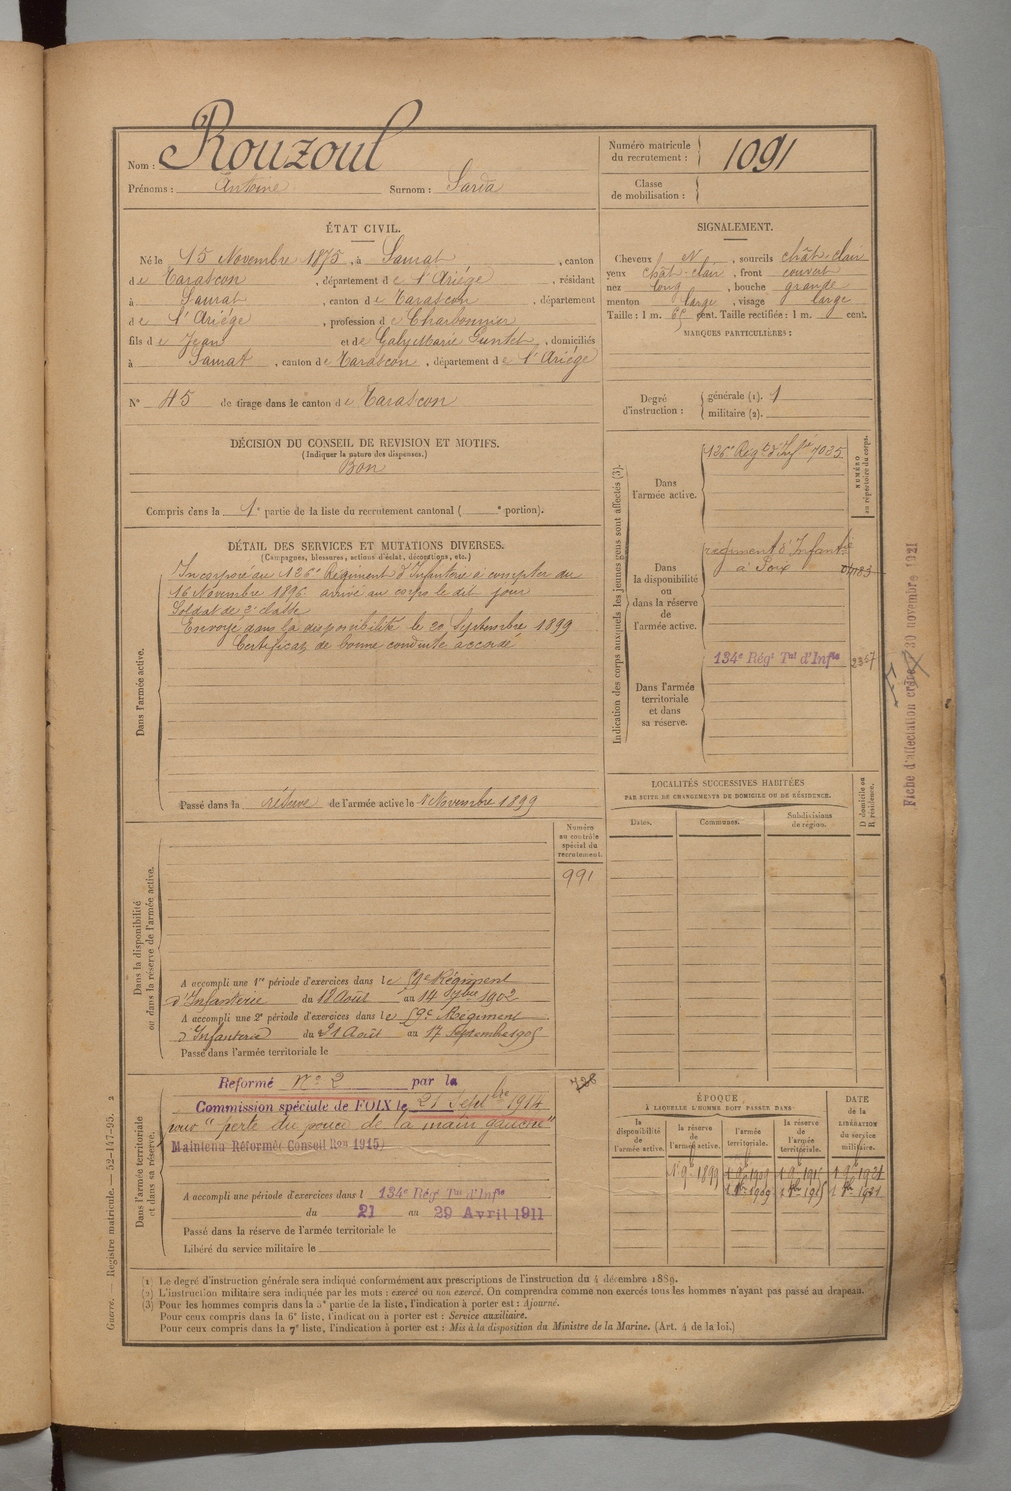 Nom : Rouzoul
Prénoms : Antoine Surnom : Sarda
Numéro matricule
du recrutement : 1091
Classe
de mobilisation :
ÉTAT CIVIL.
Né le 15 Novembre 1875, à Saurat, canton
de Tarascon, département de l'Ariége, résidant
à Saurat, canton de Tarascon, département
de l'Ariége, profession de Charbonnier
fils de Jean et de Galy Marie, domiciliés
à Saurat, canton de Tarascon, département de l'Ariége
N° 45 de tirage dans le canton de Tarascon
DÉCISION DU CONSEIL DE REVISION ET MOTIFS.
(Indiquer la nature des dispenses.)
Bon
Compris dans la 1e partie de la liste du recrutement cantonal ( e portion).
SIGNALEMENT.
Cheveux N, sourcils chât-clair
yeux chât-clair, front couvert
nez long, bouche grande
menton large, visage large
Taille : 1 m. cent. Taille rectifiée : 1 m. cent.
MARQUES PARTICULIÈRES :
Degré
d'instruction :
générale (1). 1
militaire (2).
DÉTAIL DES SERVICES ET MUTATIONS DIVERSES.
(Campagnes, blessures, actions d'éclat, décorations, etc.)
Dans l'armée active.
Incorporé au 126e Régiment d'Infanterie à compter du
16 Novembre 1896 arrivé au corps le dit jour
Soldat de 2e classe
Envoyé dans la disponibilité le 20 Septembre 1899
Certificat de bonne conduite accordé
Passé dans la réserve de l'armée active le 1 Novembre 1899
Indication des corps auxquels les jeunes gens sont affectés (3).
NUMÉRO
au répertoire du corps.
Dans
l'armée active.
126e Régt d'Infie 7035
Dans
la disponibilité
ou
dans la réserve
de
l'armée active.
régiment d'Infantie
à Foix
Dans l'armée
territoriale
et dans
sa réserve.
134e Régt Tal d'Infie 2357
Fiche d'affectation créée 30 novembre 1921
LOCALITÉS SUCCESSIVES HABITÉES
PAR SUITE DE CHANGEMENTS DE DOMICILE OU DE RÉSIDENCE.
D domicile ou
R résidence.
Dates. Communes. Subdivisions
de région.
Dans la disponibilité
ou dans la réserve de l'armée active.
Numéro
au contrôle
spécial du
recrutement.
991
A accompli une 1re période d'exercices dans le 59e Régiment
d'Infanterie du 18 Août au 14 7bre 1902
A accompli une 2e période d'exercices dans le 59e Régiment
d'Infanterie du 21 Août au 17 Septembre 1905
Passé dans l'armée territoriale le
Dans l'armée territoriale
et dans sa réserve.
Reformé n° 2 par la
Commission spéciale de FOIX le 21 Septbre 1914
pour "perte du pouce de la main gauche"
Maintenu Réformé (Conseil Ron 1915)
728
A accompli une période d'exercices dans l 134e Régt Tal d'Infie
du 21 au 29 Avril 1911
Passé dans la réserve de l'armée territoriale le
Libéré du service militaire le
ÉPOQUE
À LAQUELLE L'HOMME DOIT PASSER DANS
la
disponibilité
de
l'armée active.
la réserve
de
l'armée active.
l'armée
territoriale.
la réserve
de
l'armée
territoriale.
DATE
de la
LIBÉRATION
du service
militaire.
1 9bre 1899 1 9bre 1909 1 9bre 1915 1 9bre 1921
1 8bre 1909 1 8bre 1915 1 8bre 1921
(1) Le degré d'instruction générale sera indiqué conformément aux prescriptions de l'instruction du 4 décembre 1889.
(2) L'instruction militaire sera indiquée par les mots : exercé ou non exercé. On comprendra comme non exercés tous les hommes n'ayant pas passé au drapeau.
(3) Pour les hommes compris dans la 5e partie de la liste, l'indication à porter est : Ajourné.
Pour ceux compris dans la 6e liste, l'indication à porter est : Service auxiliaire.
Pour ceux compris dans la 7e liste, l'indication à porter est : Mis à la disposition du Ministre de la Marine. (Art. 4 de la loi.)
Guerre. — Registre matricule. — 52-147-95. 2